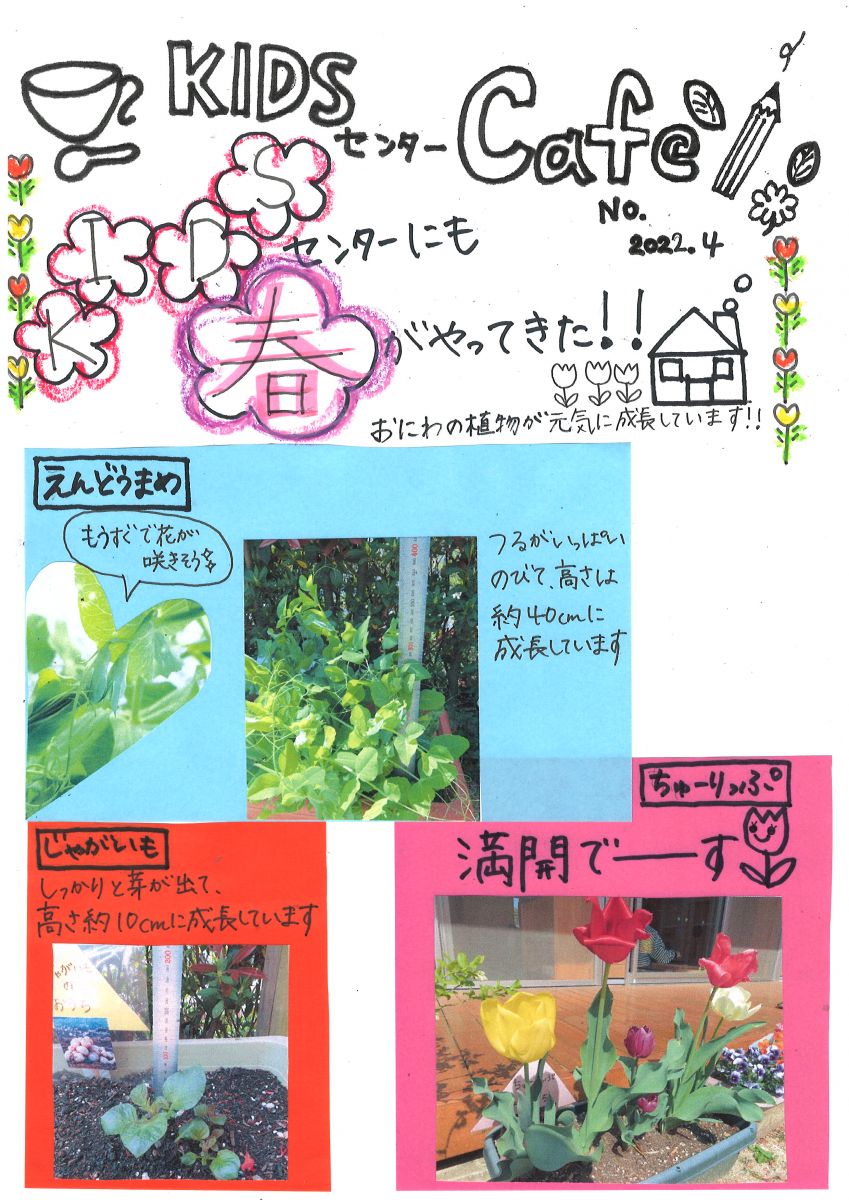 KIDS
センター Cafe
No.
2022.4
KIDS
センターにも
春がやってきた!!
おにわの植物が元気に成長しています!!
えんどうまめ
もうすぐで花が
咲きそう
つるがいっぱい
のびて、高さは
約40cmに
成長しています
ちゅーりっぷ
満開でーーす
じゃがいも
しっかりと芽が出て、
高さ約10cmに成長しています
400
200
じゃがいも
の
おうち